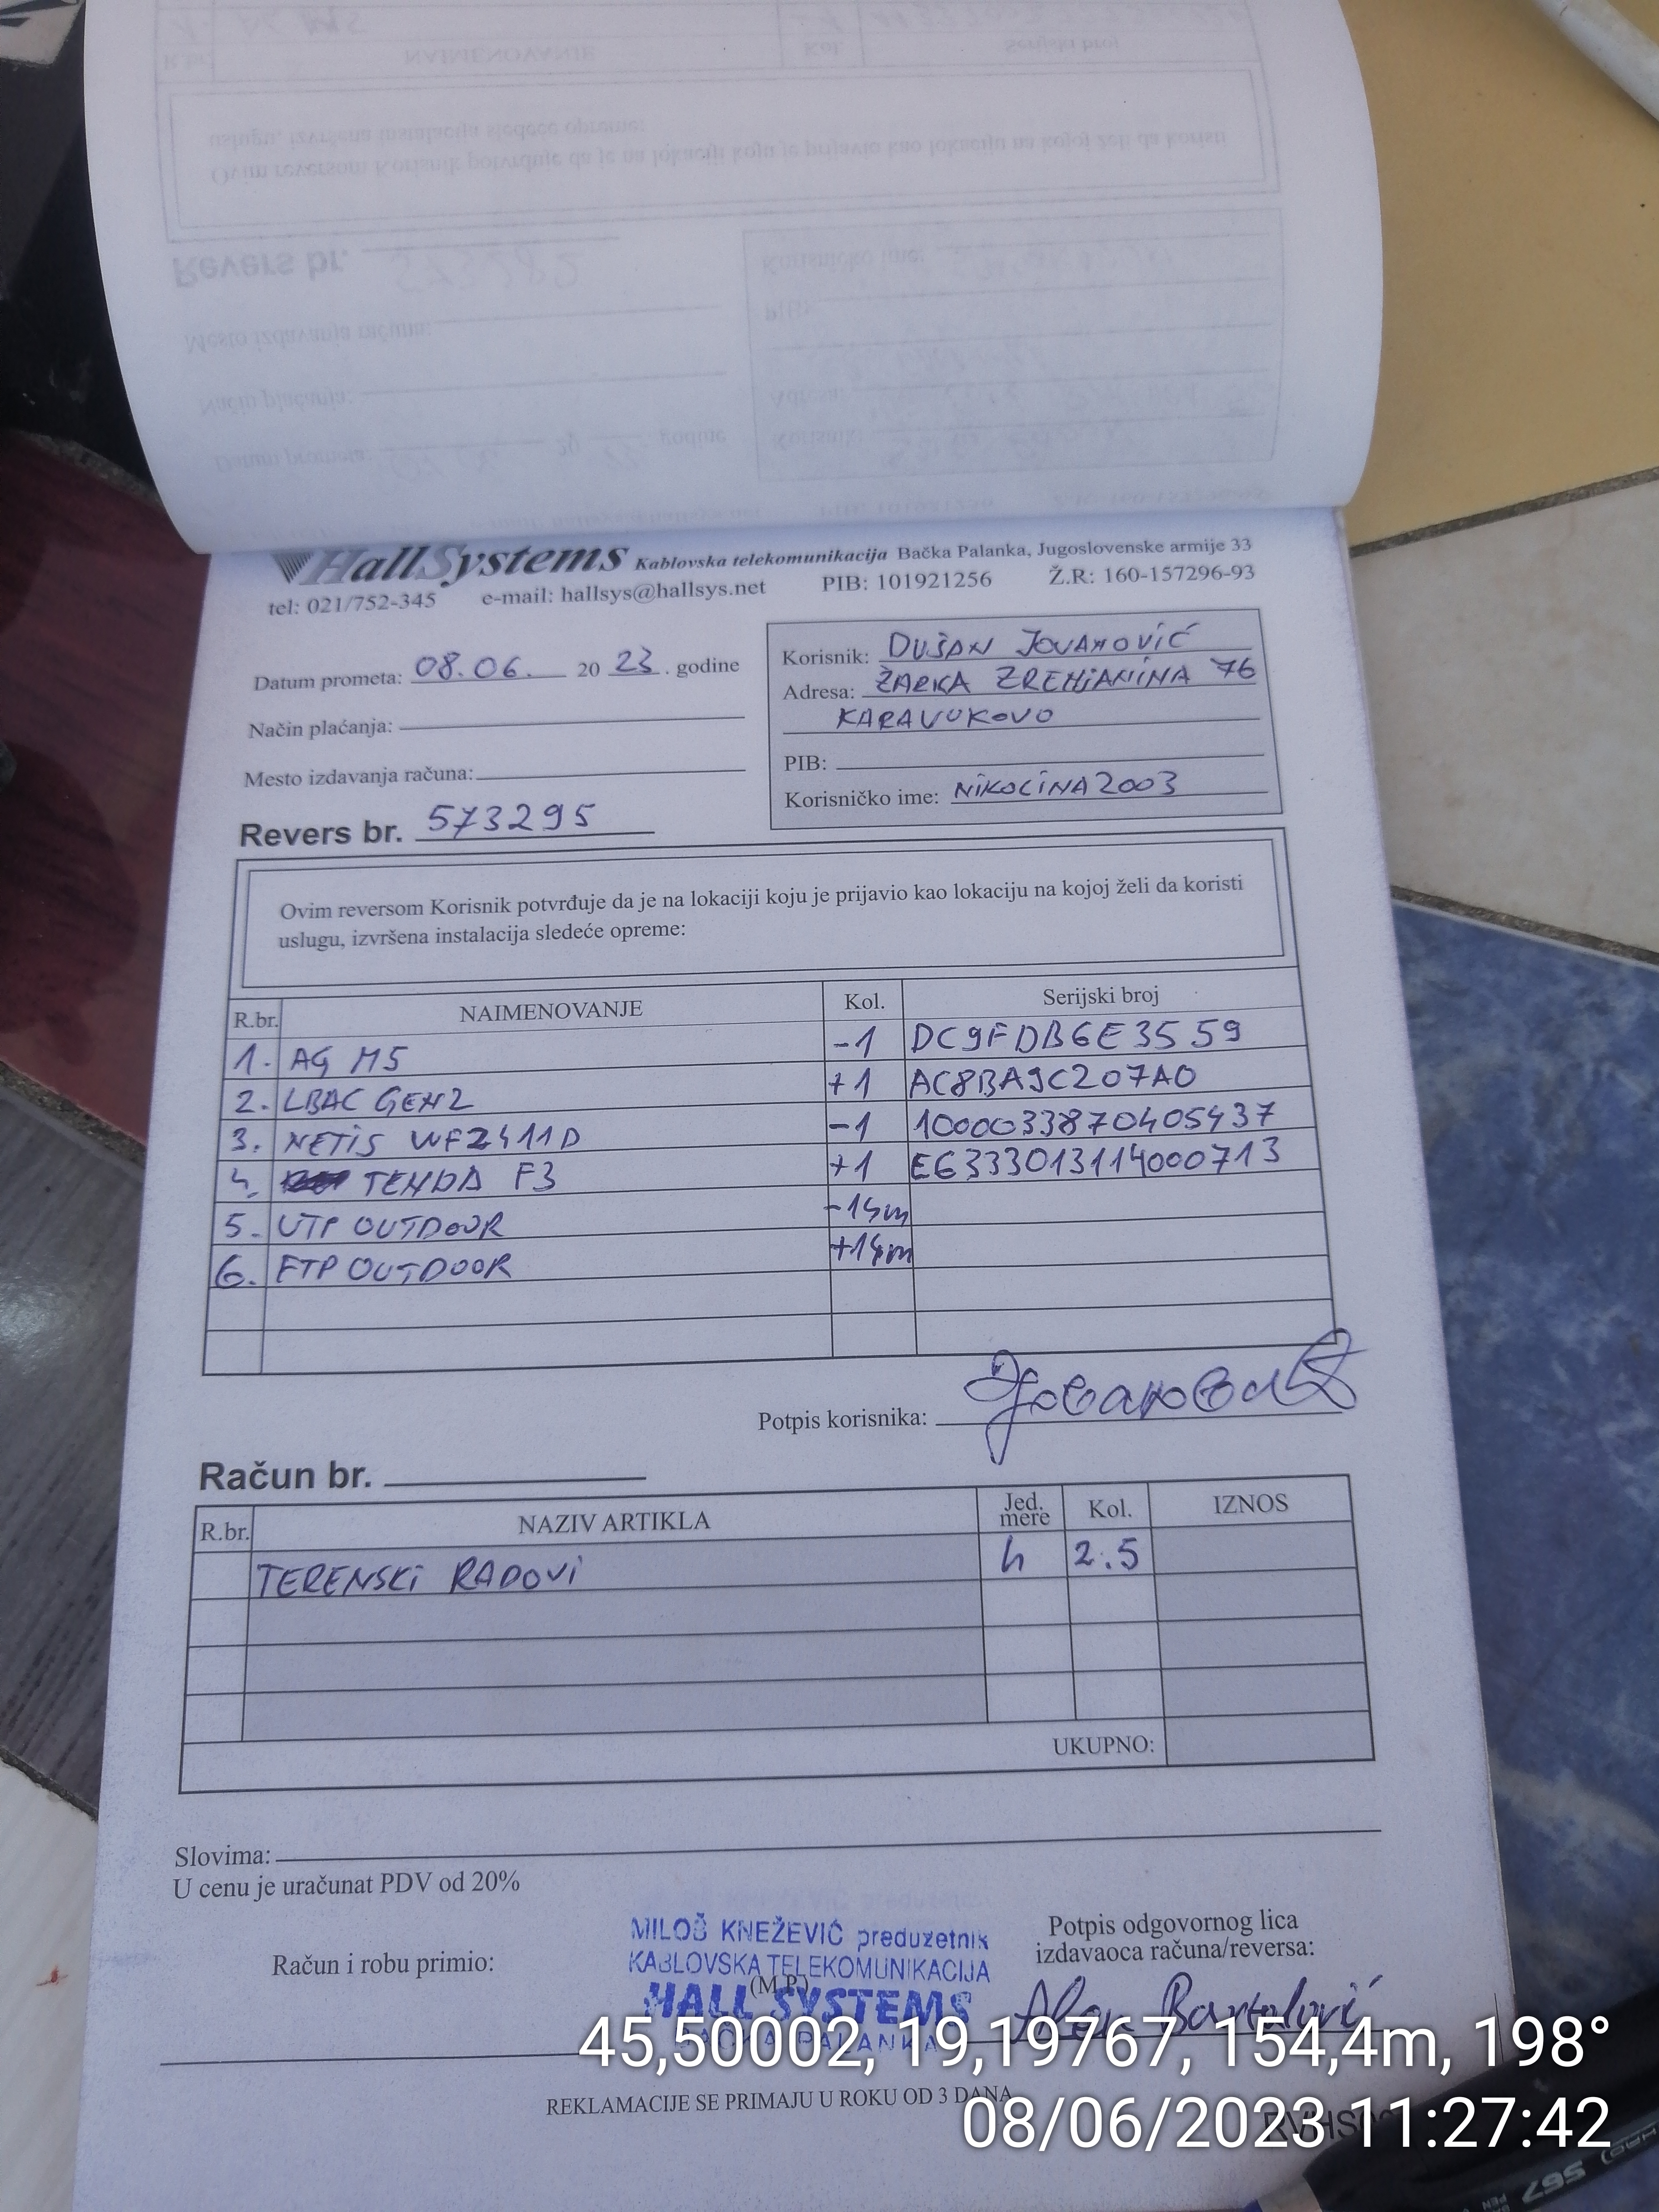 HallSystems Kablovska telekomunikacija Bačka Palanka, Jugoslovenske armije 33
tel: 021/752-345 e-mail: hallsys@hallsys.net PIB: 101921256 Ž.R: 160-157296-93
Datum prometa: 08.06. 20 23. godine
Način plaćanja:
Mesto izdavanja računa:
Revers br. 573295
Korisnik: DUŠAN JOVANOVIĆ
Adresa: ŽARKA ZRENJANINA 76
KARAVUKOVO
PIB:
Korisničko ime: NIKOLINA2003
Ovim reversom Korisnik potvrđuje da je na lokaciji koju je prijavio kao lokaciju na kojoj želi da koristi
uslugu, izvršena instalacija sledeće opreme:
R.br. NAIMENOVANJE Kol. Serijski broj
1. AG M5 -1 DC9FDB6E3559
2. LBAC GEN2 +1 AC8BA9C207A0
3. NETIS WF2411D -1 1000033870405437
4. TENDA F3 +1 E6333013114000713
5. UTP OUTDOOR -14m
6. FTP OUTDOOR +14m
Potpis korisnika: Јовановић
Račun br.
R.br. NAZIV ARTIKLA Jed. mere Kol. IZNOS
TERENSKI RADOVI h 2.5
UKUPNO:
Slovima:
U cenu je uračunat PDV od 20%
Račun i robu primio:
MILOŠ KNEŽEVIĆ preduzetnik
KABLOVSKA TELEKOMUNIKACIJA
(M.P.)
HALL SYSTEMS
BAČKA PALANKA
Potpis odgovornog lica
izdavaoca računa/reversa:
Alen Bartolović
REKLAMACIJE SE PRIMAJU U ROKU OD 3 DANA
45,50002, 19,19767, 154,4m, 198°
08/06/2023 11:27:42
567